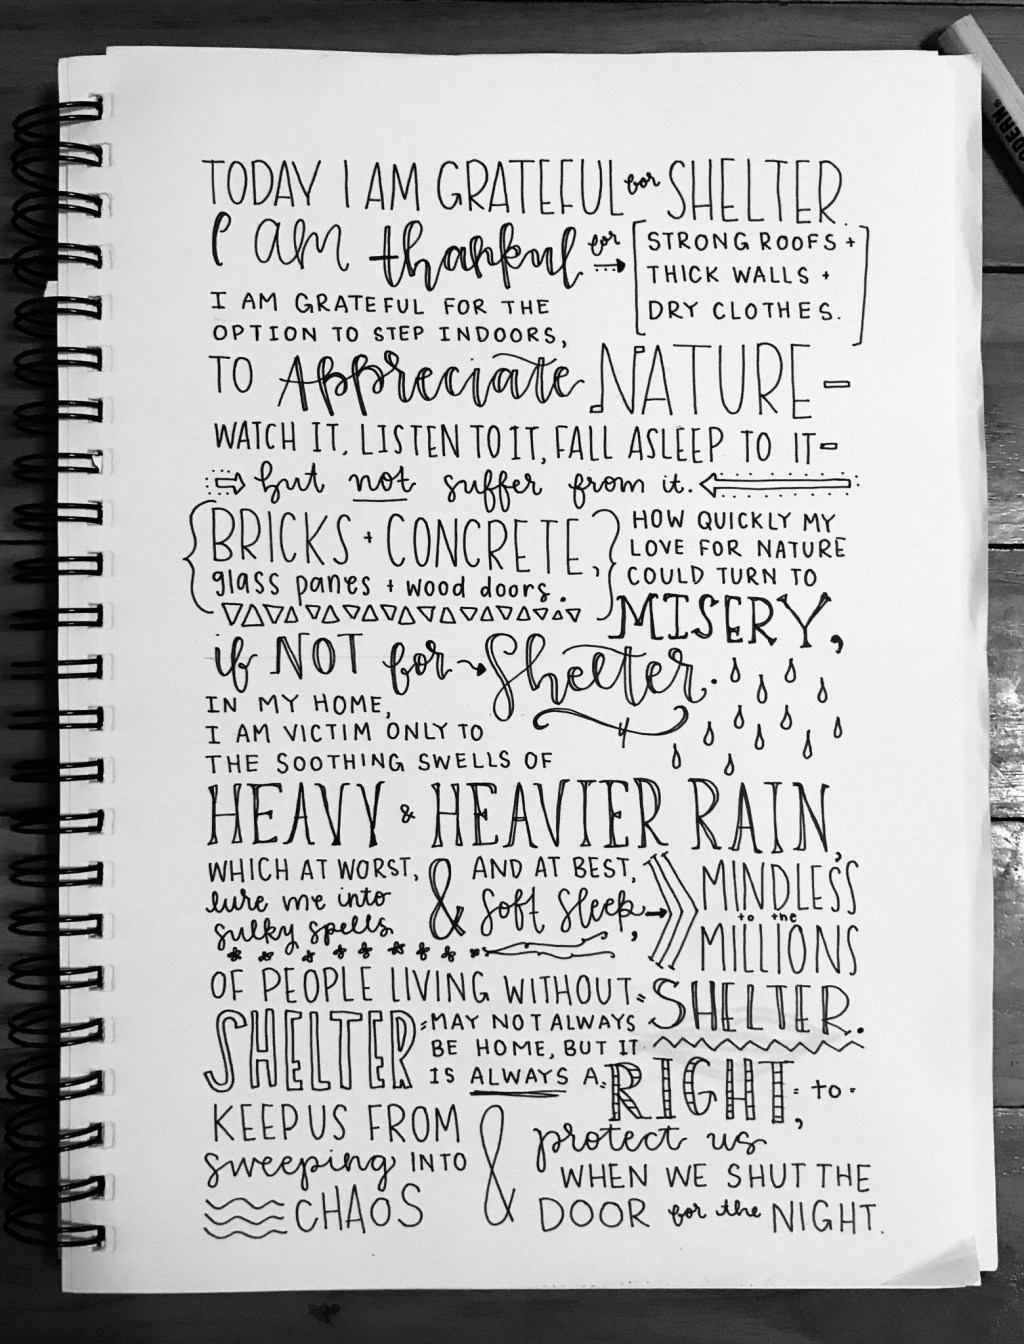 TODAY I AM GRATEFUL for SHELTER.
I am thankful for
STRONG ROOFS +
THICK WALLS +
DRY CLOTHES.
I AM GRATEFUL FOR THE
OPTION TO STEP INDOORS,
TO Appreciate NATURE -
WATCH IT, LISTEN TO IT, FALL ASLEEP TO IT -
but not suffer from it.
BRICKS + CONCRETE,
glass panes + wood doors.
HOW QUICKLY MY
LOVE FOR NATURE
COULD TURN TO
MISERY,
if NOT for Shelter.
IN MY HOME,
I AM VICTIM ONLY TO
THE SOOTHING SWELLS OF
HEAVY & HEAVIER RAIN,
WHICH AT WORST,
lure me into
sulky spells
&
AND AT BEST,
Soft Sleep,
MINDLESS
to the
MILLIONS
OF PEOPLE LIVING WITHOUT
SHELTER.
SHELTER
MAY NOT ALWAYS
BE HOME, BUT IT
IS ALWAYS A
RIGHT, to
KEEP US FROM
sweeping INTO
CHAOS
&
protect us
WHEN WE SHUT THE
DOOR for the NIGHT.